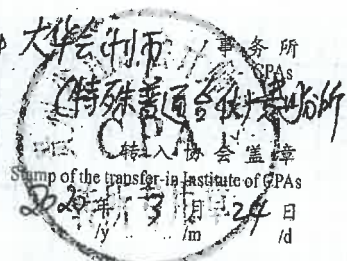 大华会计师事务所
CPAs
(特殊普通合伙)
CPA
转入协会盖章
Stamp of the transfer-in Institute of CPAs
2020年3月24日
/y /m /d